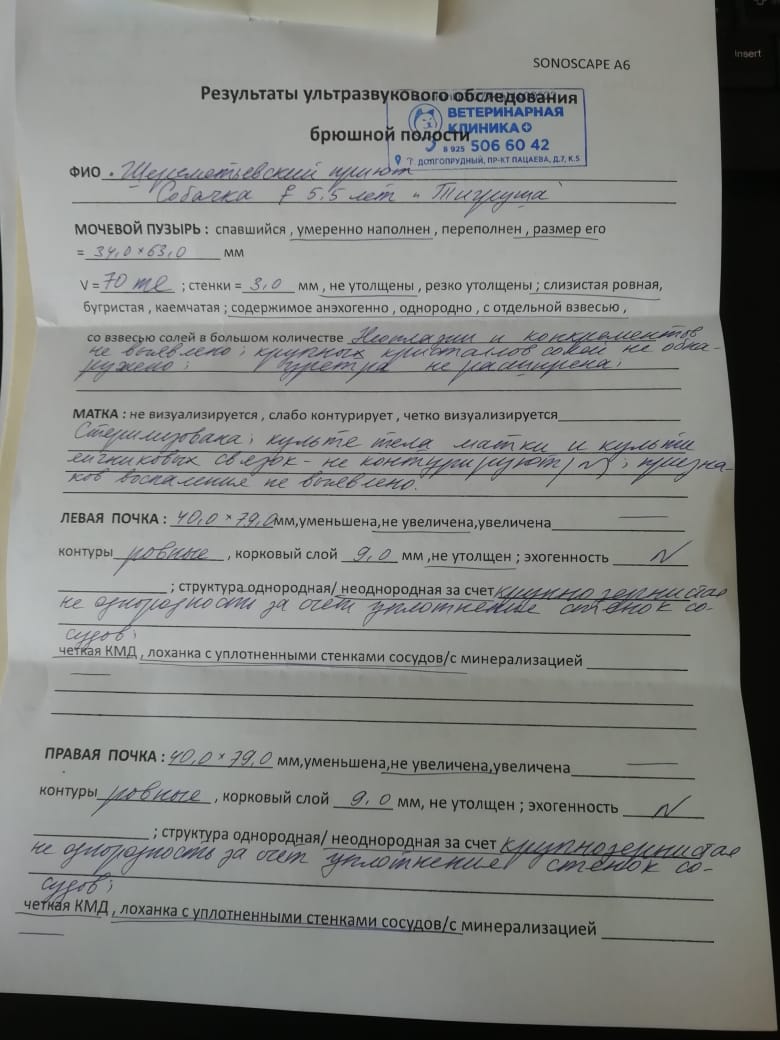 insert
SONOSCAPE A6
Результаты ультразвукового обследования
брюшной полости
ВЕТЕРИНАРНАЯ
КЛИНИКА
8 925 506 60 42
Г. ДОЛГОПРУДНЫЙ, ПР-КТ ПАЦАЕВА, Д.7, К.5
ФИО . Шереметьевский приют
Собачка f 5,5 лет "Тигруша"
МОЧЕВОЙ ПУЗЫРЬ : спавшийся , умеренно наполнен , переполнен , размер его
= 34,0 × 63,0 мм
V = 70 ; стенки = 3,0 мм , не утолщены , резко утолщены ; слизистая ровная,
бугристая , каемчатая ; содержимое анэхогенно , однородно , с отдельной взвесью ,
со взвесью солей в большом количестве Неоплазии и конкрементов
не выявлено ; крупных кристаллов солей не обна-
ружено ; уретра не расширена ;
МАТКА : не визуализируется , слабо контурирует , четко визуализируется
Стерилизована ; культе тела матки и культи
яичниковых связок - не контурируют (N) ; призна-
ков воспаления не выявлено.
ЛЕВАЯ ПОЧКА : 40,0 × 79,0 мм,уменьшена,не увеличена,увеличена
контуры ровные , корковый слой 9,0 мм ,не утолщен ; эхогенность N
; структура однородная/ неоднородная за счет крупнозернистая
не однородность за счет уплотнение стенок со-
судов ;
четкая КМД , лоханка с уплотненными стенками сосудов/с минерализацией
ПРАВАЯ ПОЧКА : 40,0 × 79,0 мм,уменьшена,не увеличена,увеличена
контуры ровные , корковый слой 9,0 мм, не утолщен ; эхогенность N
; структура однородная/ неоднородная за счет крупнозернистая
не однородность за счет уплотнение стенок со-
судов ;
четкая КМД , лоханка с уплотненными стенками сосудов/с минерализацией